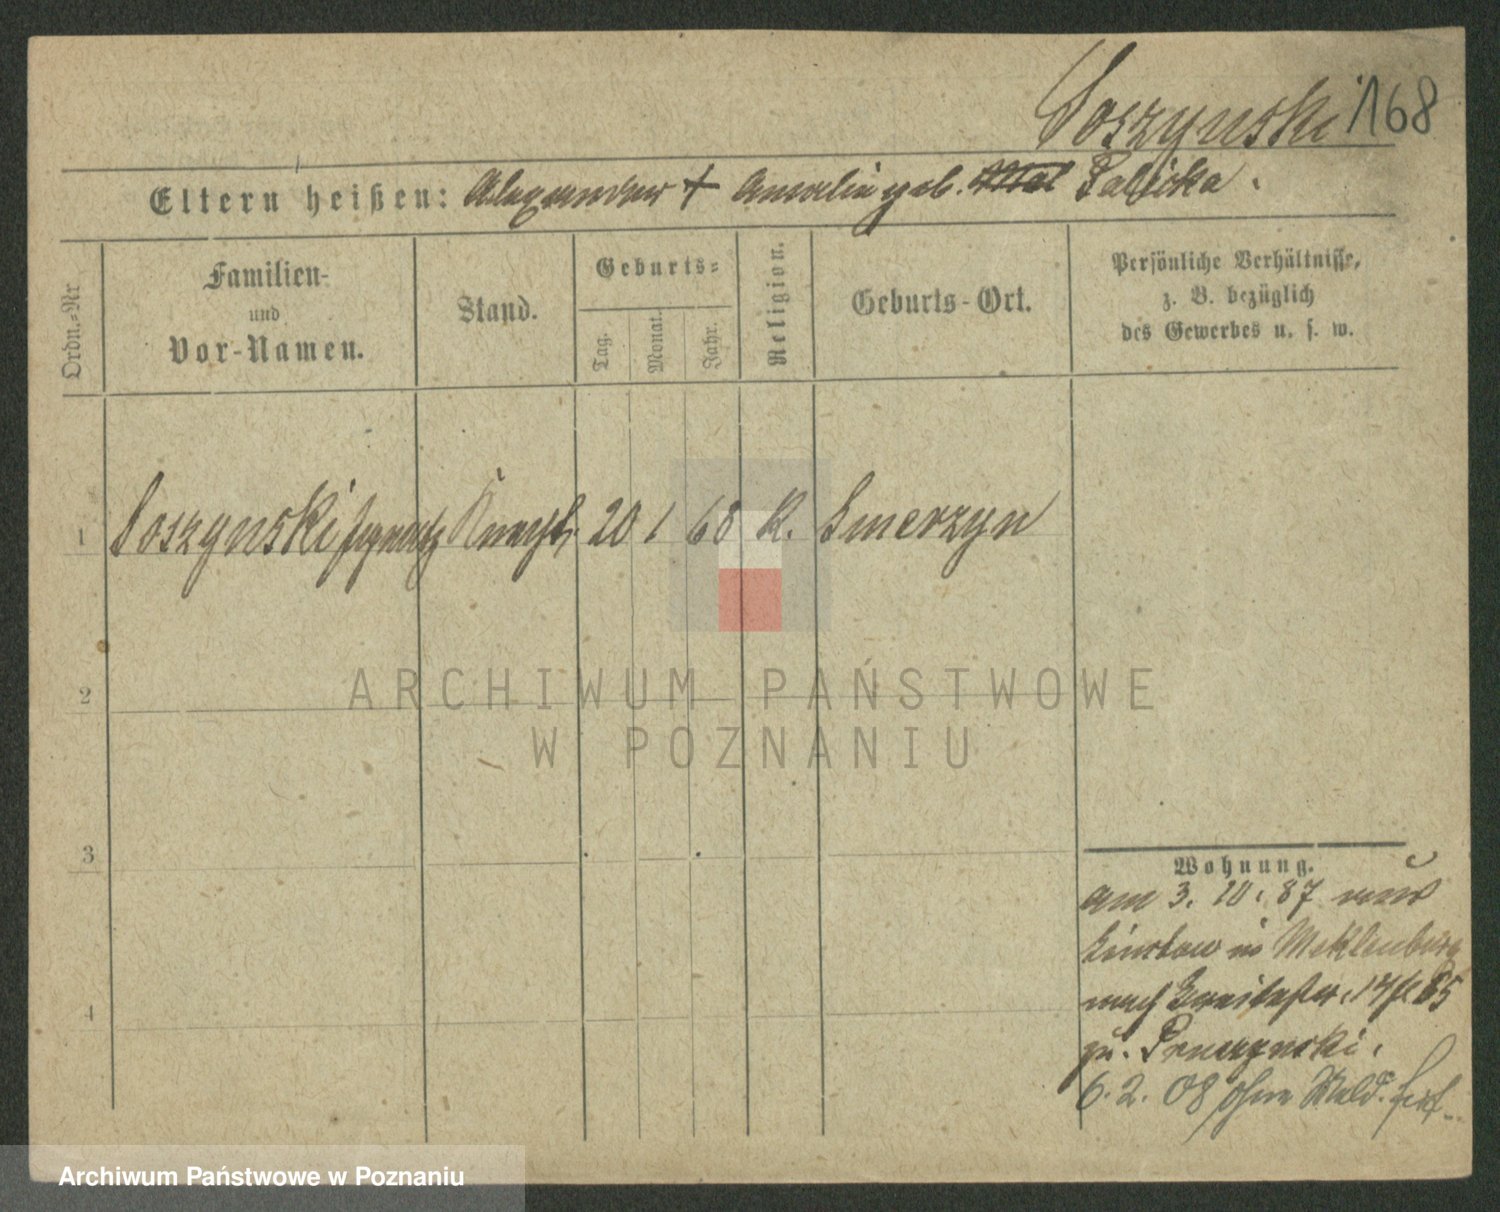 Soszynski 168
Eltern heißen: Alexander + Amalie geb. Palicka.
Ordn.-Nr
Familien-
und
Vor-Namen.
Stand.
Geburts-
Tag.
Monat.
Jahr.
Religion.
Geburts-Ort.
Persönliche Verhältnisse,
z. B. bezüglich
des Gewerbes u. s. w.
1 Soszynski Ignatz Knecht 20 1 68 k. Smerzyn
2
3
4
Wohnung.
am 3. 10. 87 von
in Meklenburg
nach 85
zu. Pruszynski.
6. 2. 08 ohne Meld. fort
ARCHIWUM PAŃSTWOWE
W POZNANIU
Archiwum Państwowe w Poznaniu